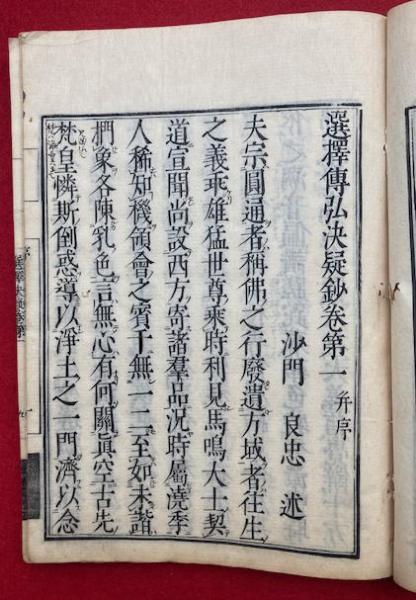 選擇傳弘決疑鈔卷第一 并序
沙門 良忠 述
夫宗圓通者稱佛之行廢遺方域者往生
之義乖雄猛世尊乘時利見馬鳴大士契
道宣聞尚設西方寄諸羣品況時屬澆季
人稀知機領會之賓千無一二至如未諧
捫象各陳乳色言無心有何關眞空古先
梵皇憐斯倒惑導以淨土之一門濟以念